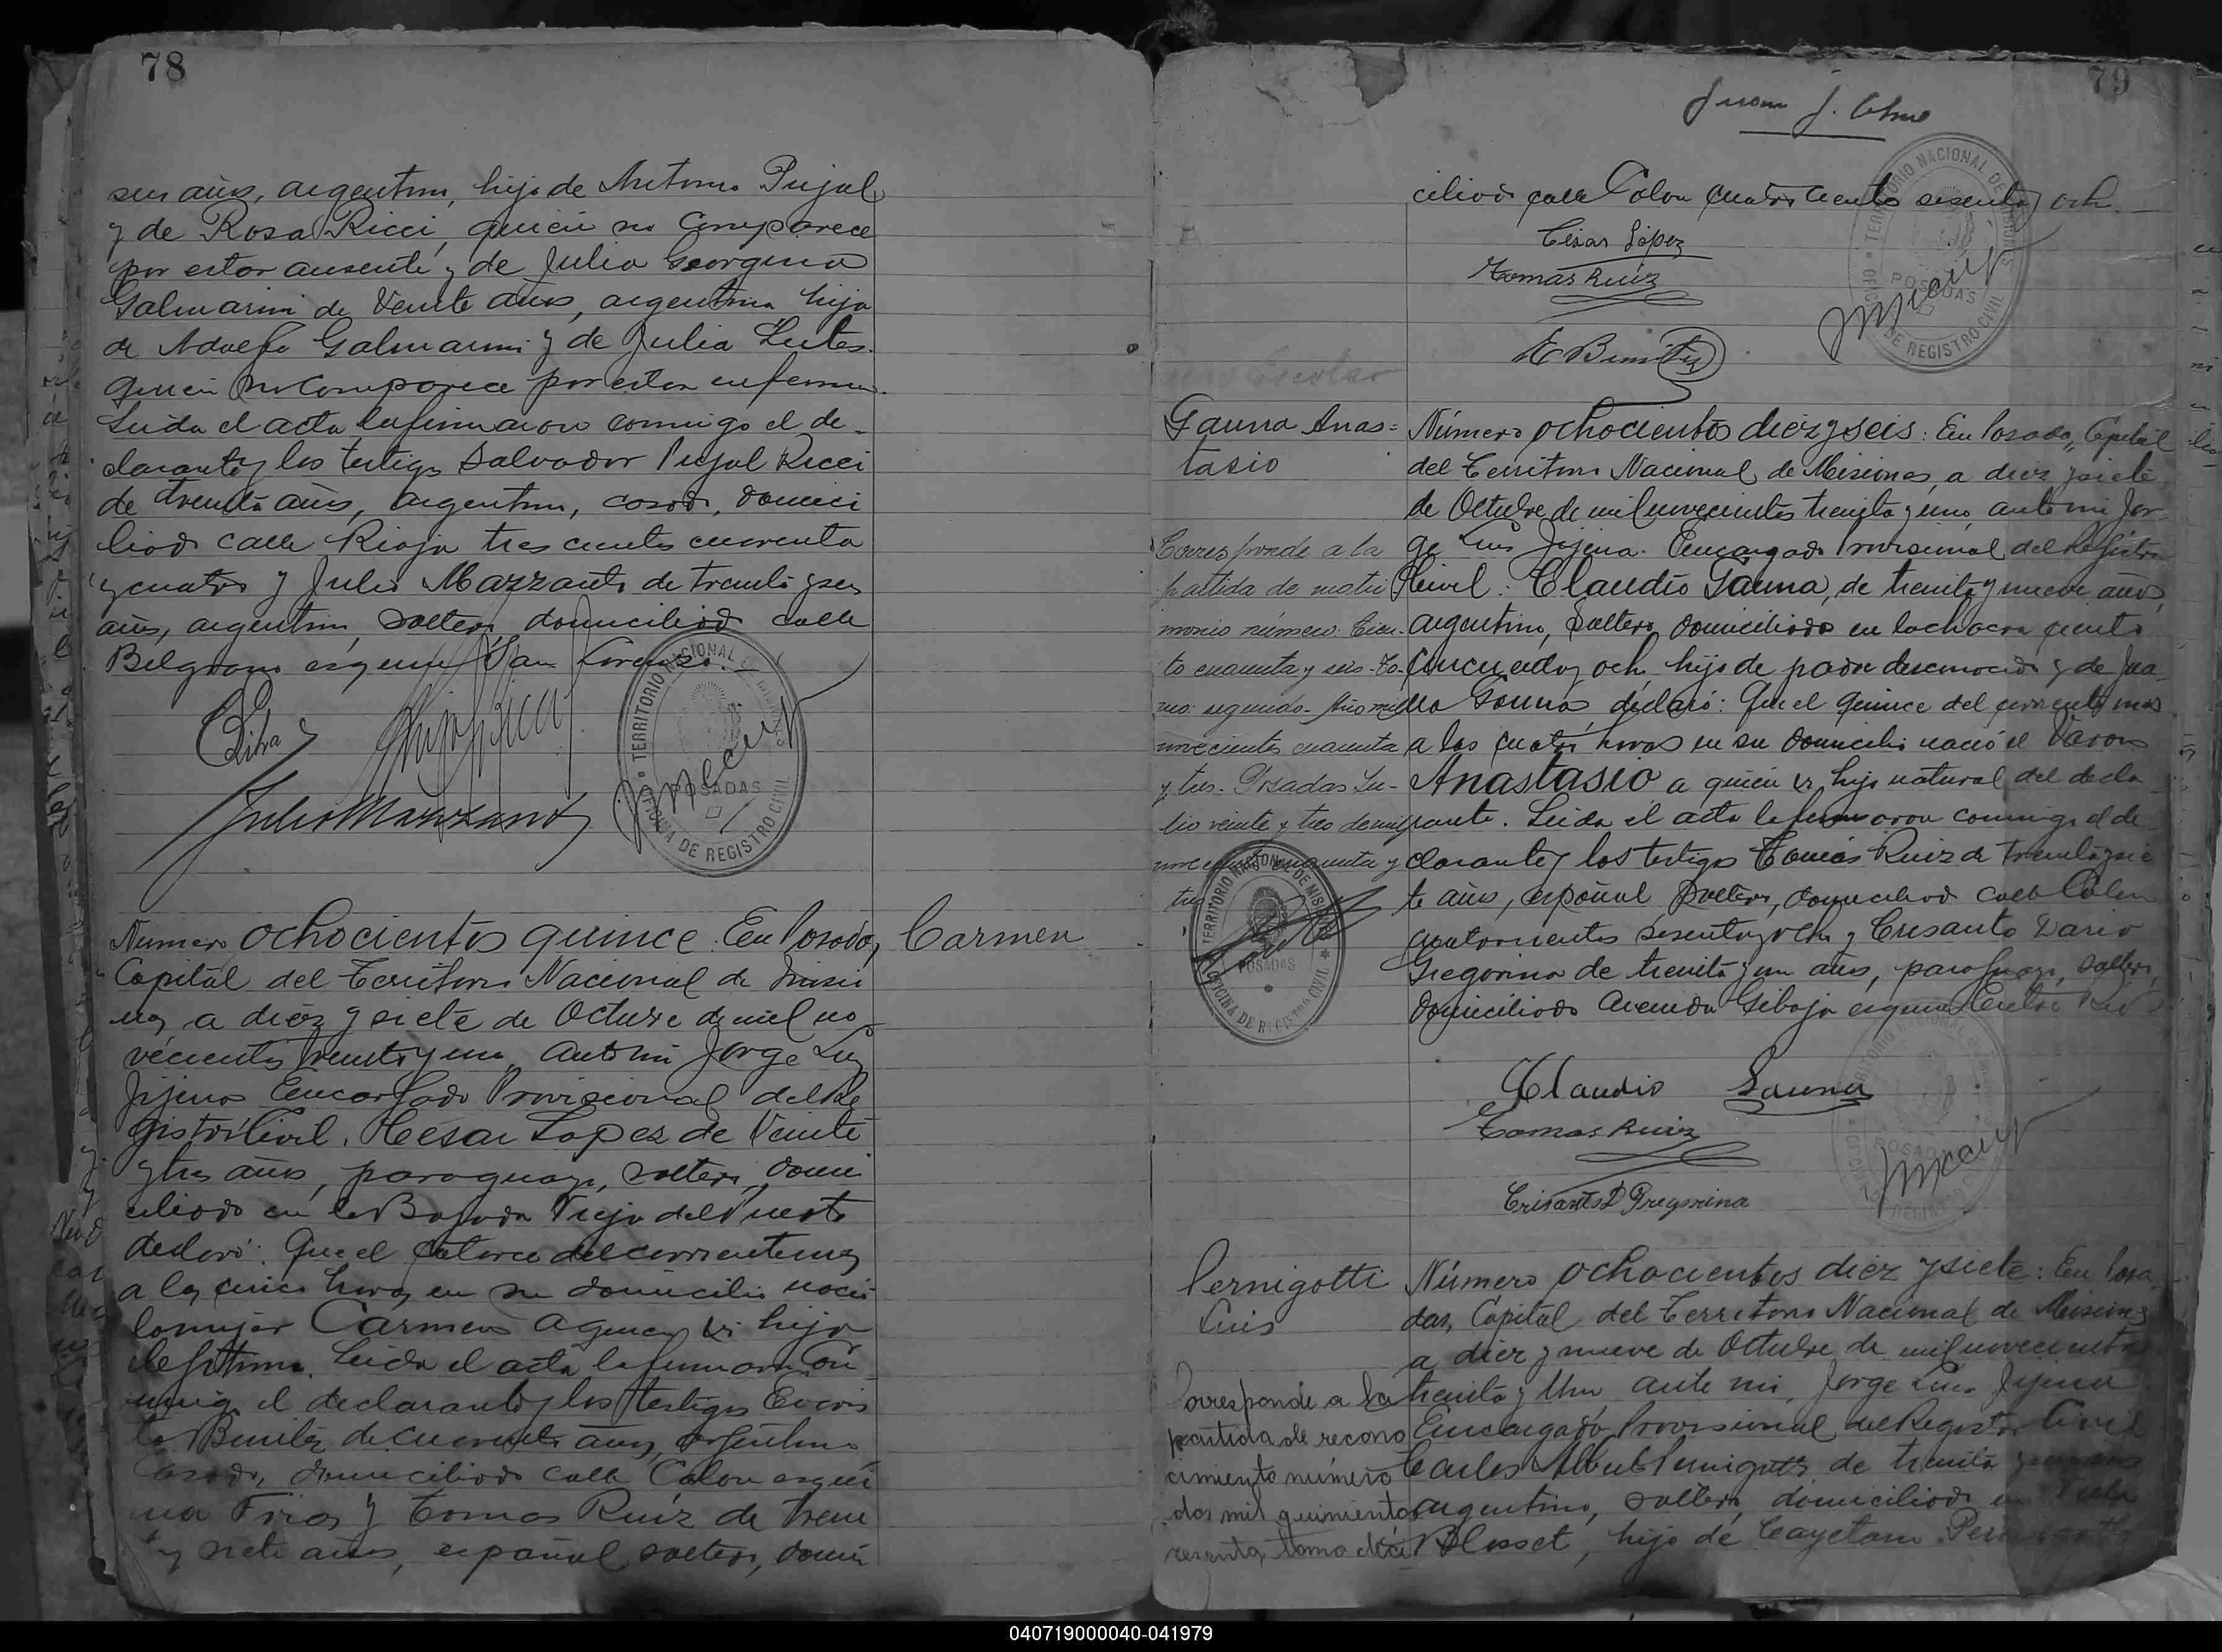 78
seis años, argentino, hijo de Antonio Pujol
y de Rosa Ricci, quien no comparece
por estar ausente y de Julia Georgina
Galmarini de veinte años, argentina hija
de Adolfo Galmarini y de Julia
quien no comparece por estar enferma.
Leida el acta la firmaron conmigo el de-
clarante y los testigos Salvador Pujol Ricci
de treinta años, argentino, casado, domici
liado calle Rioja trescientos cuarenta
y cuatro y Julio Mazzanti de treinta y seis
años, argentino, soltero, domiciliado calle
Belgrano esquina San Lorenzo.
Julio Mazzanti
TERRITORIO NACIONAL DE MISIONES
POSADAS
OFICINA DE REGISTRO CIVIL
Carmen
Numero ochocientos quince: En Posadas,
Capital del Territorio Nacional de Misio
nes a diez y siete de Octubre de mil no
vecientos treinta y uno, ante mi Jorge Luis
Jijena Encargado Provisional del Re
gistro Civil, Cesar Lopez de veinte
y tres años, paraguayo, soltero, domi
ciliado en la Bajada Vieja del Puerto
declaró: Que el catorce del corriente mes
a las cinco horas en su domicilio nació
la mujer Carmen a quien es hija
ilegitima. Leida el acta la firmaron con
migo el declarante y los testigos Evaris
to Benitez de cuarenta años, argentino
casado, domiciliado calle Colon esqui
na Frias y Tomas Ruiz de trein
ta y siete años, español soltero, domi
79
Juan J.
ciliado calle Colon cuatrocientos sesenta y ocho.
César López
Tomás Ruiz
E Benitez
TERRITORIO NACIONAL DE MISIONES
POSADAS
OFICINA DE REGISTRO CIVIL
Escolar
Gauna Anas=
tasio
Número ochocientos diez y seis: En Posadas, Capital
del Territorio Nacional de Misiones, a diez y siete
de Octubre de mil novecientos treinta y uno, ante mi Jor
ge Luis Jijena. Encargado Provisional del Registro
Civil: Claudio Gauna, de treinta y nueve años,
argentino, soltero, domiciliado en la chacra ciento
cincuenta y ocho hijo de padre desconocido y de Jua
na Gauna, declaró: Que el quince del corriente mes
a las cuatro horas en su domicilio nació el varon
Anastasio a quien es hijo natural del decla
rante. Leida el acta la firmaron conmigo el de
clarante y los testigos Tomás Ruiz de treinta y sie
te años, español soltero, domiciliado calle Colon
cuatrocientos sesenta y ocho y Crisanto Dario
Gregorina de treinta y un años, paraguayo, soltero,
domiciliado Avenida Gibaja esquina Entre Rios
Corresponde a la
partida de matri
monio número: Cien-
to cuarenta y seis- To-
mo: segundo- Año mil
novecientos cuarenta
y tres- Posadas Ju-
lio veinte y tres de mil
novecientos cuarenta y
tres
TERRITORIO NACIONAL DE MISIONES
POSADAS
OFICINA DE REGISTRO CIVIL
Claudio Gauna
Tomas Ruiz
Crisanto D Gregorina
Pernigotti
Luis
Número ochocientos diez y siete: En Posa
das, Capital del Territorio Nacional de Misiones
a diez y nueve de Octubre de mil novecientos
treinta y uno ante mi, Jorge Luis Jijena
Encargado Provisional del Registro Civil
Carlos Alberto Pernigotti de treinta y años
argentino, soltero, domiciliado en
Blosset, hijo de Cayetano Pernigotti
Corresponde a la
partida de recono
cimiento número
dos mil quinientos
sesenta, tomo
040719000040-041979